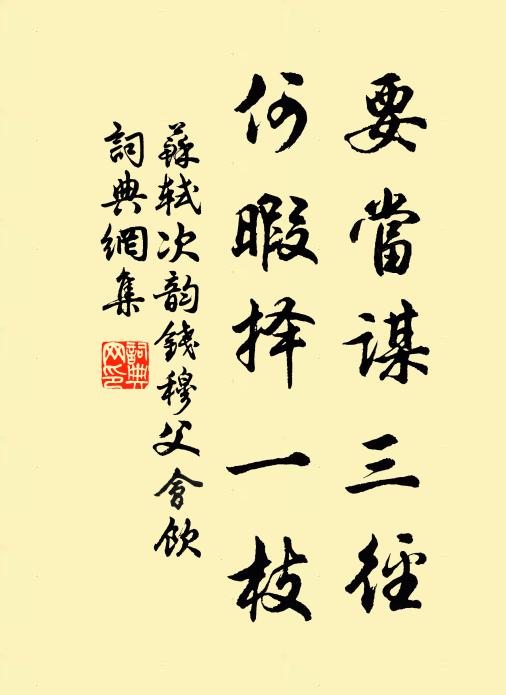 要當謀三径
何暇择一枝
蘇轼次韵錢穆父會飲
詞典網集
詞典网印